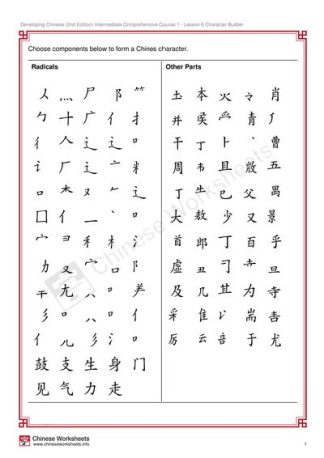 Developing Chinese (2nd Edition) Intermediate Comprehensive Course 1 - Lesson 6 Character Builder
Choose components below to form a Chines character.
Radicals
Other Parts
人 灬 尸 阝 ⺮ 土 本 火 肖
勹 十 广 亻 扌 并 侯 青
彳 辶 辶 口 干 丁 卜 丶 曹
讠 厂 辶 亠 周 韦 且 散 五
口 木 又 𠂉 辶 丁 生 已 父 禺
囗 亻 一 丶 口 大 敖 少 又 景
宀 彳 氵 首 郎 丁 百 乎
力 又 宀 口 阝 虚 丑 旦
尢 口 ⺷ 及 几 其 为 寺
彡 口 口 亻 采 隹 讠 耑
亻 彡 氵 口 厉 云 咅 于 尤
鼓 支 生 身 门
见 气 力 走
Chinese Worksheets
Chinese Worksheets
www.chineseworksheets.info
1